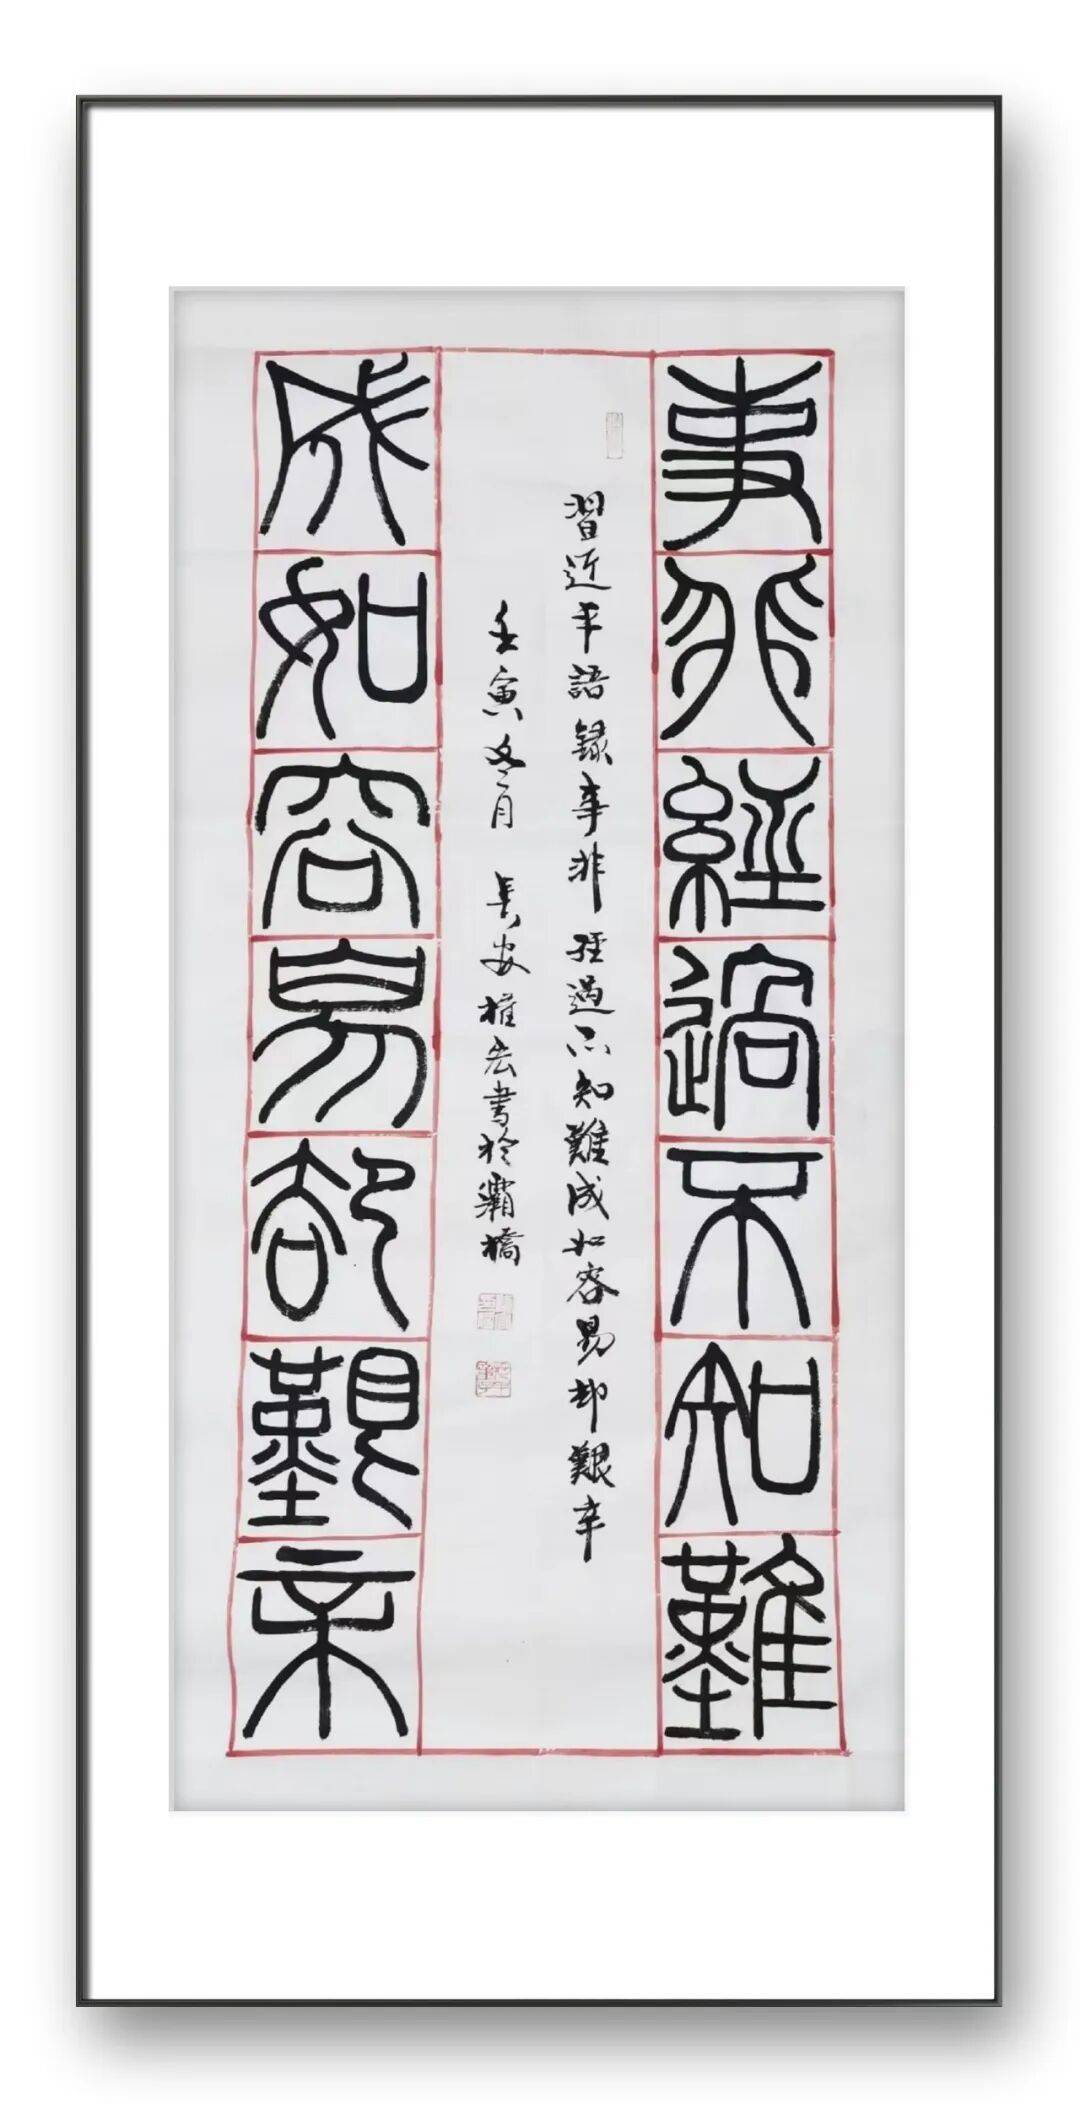 事非經過不知難
習近平語錄事非經過不知難成如容易却艱辛
壬寅冬月長安權宏書於灞橋
成如容易卻艱辛